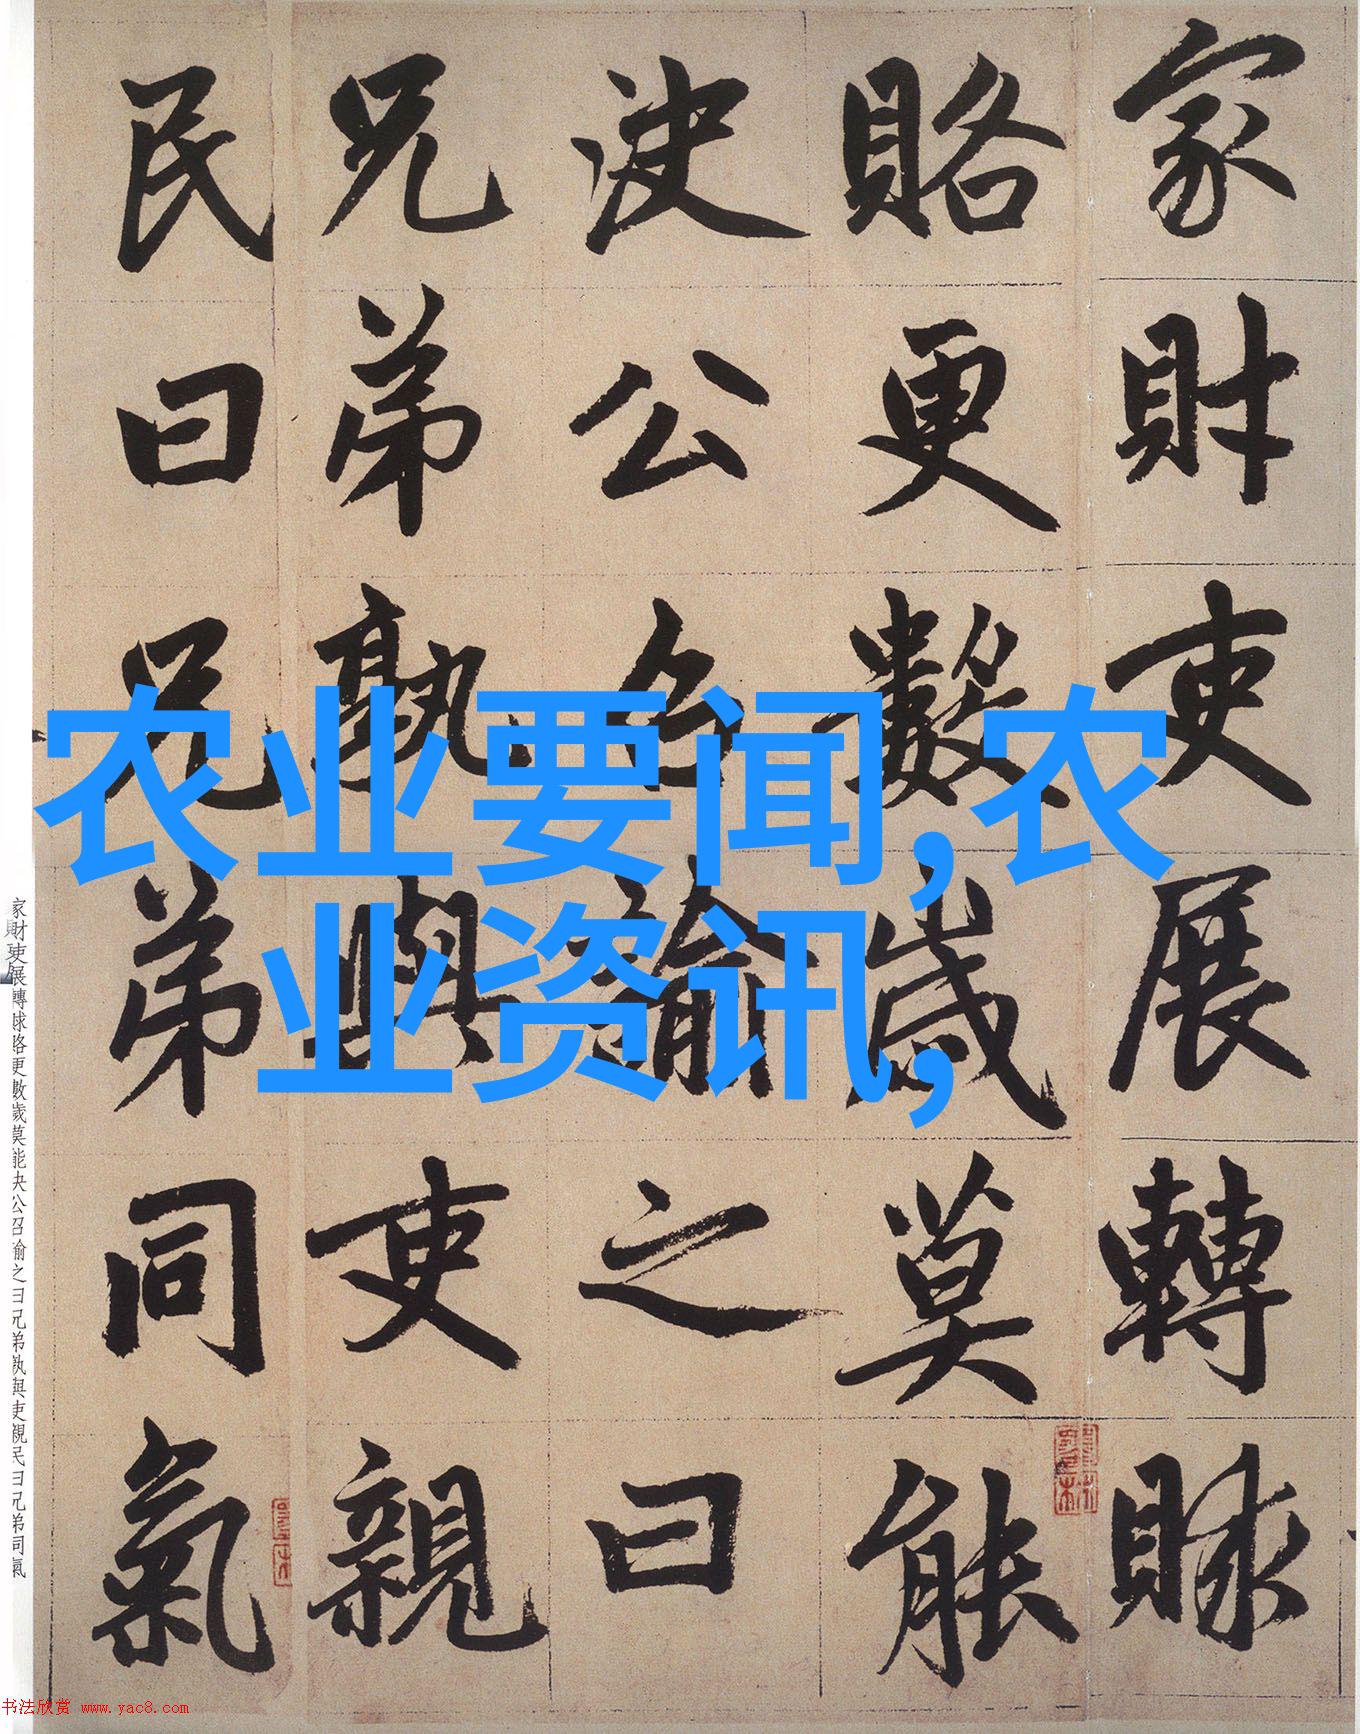 家財吏展轉賕
賂更數歲莫能
決公召諭之曰
兄弟孰與吏親
民曰兄弟同氣
农业要闻,农
业资讯,
家財吏展轉賕賂更數歲莫能決公召諭之曰兄弟孰與吏親民曰兄弟同氣
书法欣赏 www.yac8.com